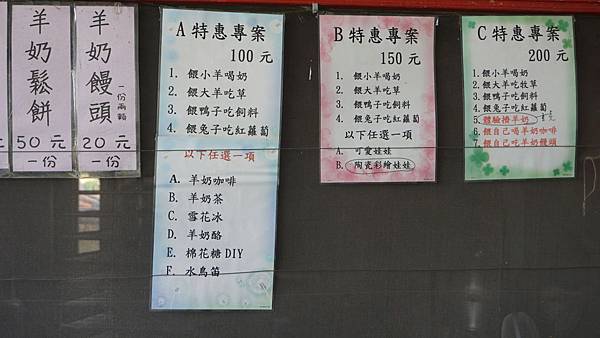 羊奶鬆餅
50元
一份
羊奶饅頭
一份兩顆
20元
一份
A 特惠專案
100 元
1. 餵小羊喝奶
2. 餵大羊吃草
3. 餵鴨子吃飼料
4. 餵兔子吃紅蘿蔔
以下任選一項
A. 羊奶咖啡
B. 羊奶茶
C. 雪花冰
D. 羊奶酪
E. 棉花糖DIY
F. 水鳥笛
B 特惠專案
150 元
1. 餵小羊喝奶
2. 餵大羊吃草
3. 餵鴨子吃飼料
4. 餵兔子吃紅蘿蔔
以下任選一項
A. 可愛娃娃
B. 陶瓷彩繪娃娃
C 特惠專案
200 元
1. 餵小羊喝奶
2. 餵大羊吃牧草
3. 餵鴨子吃飼料
4. 餵兔子吃紅蘿蔔
5. 體驗擠羊奶
6. 餵自己喝羊奶咖啡
7. 餵自己吃羊奶饅頭